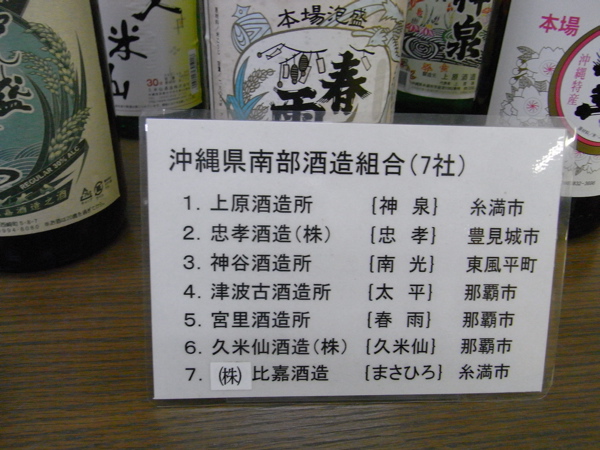 米仙
30
本場泡盛
春雨
神泉
上原酒造
本場
沖縄特産
REGULAR 30% ALC.
沖縄県南部酒造組合(7社)
1. 上原酒造所 {神 泉} 糸満市
2. 忠孝酒造(株) {忠 孝} 豊見城市
3. 神谷酒造所 {南 光} 東風平町
4. 津波古酒造所 {太 平} 那覇市
5. 宮里酒造所 {春 雨} 那覇市
6. 久米仙酒造(株) {久米仙} 那覇市
7. ㈱ 比嘉酒造 {まさひろ} 糸満市